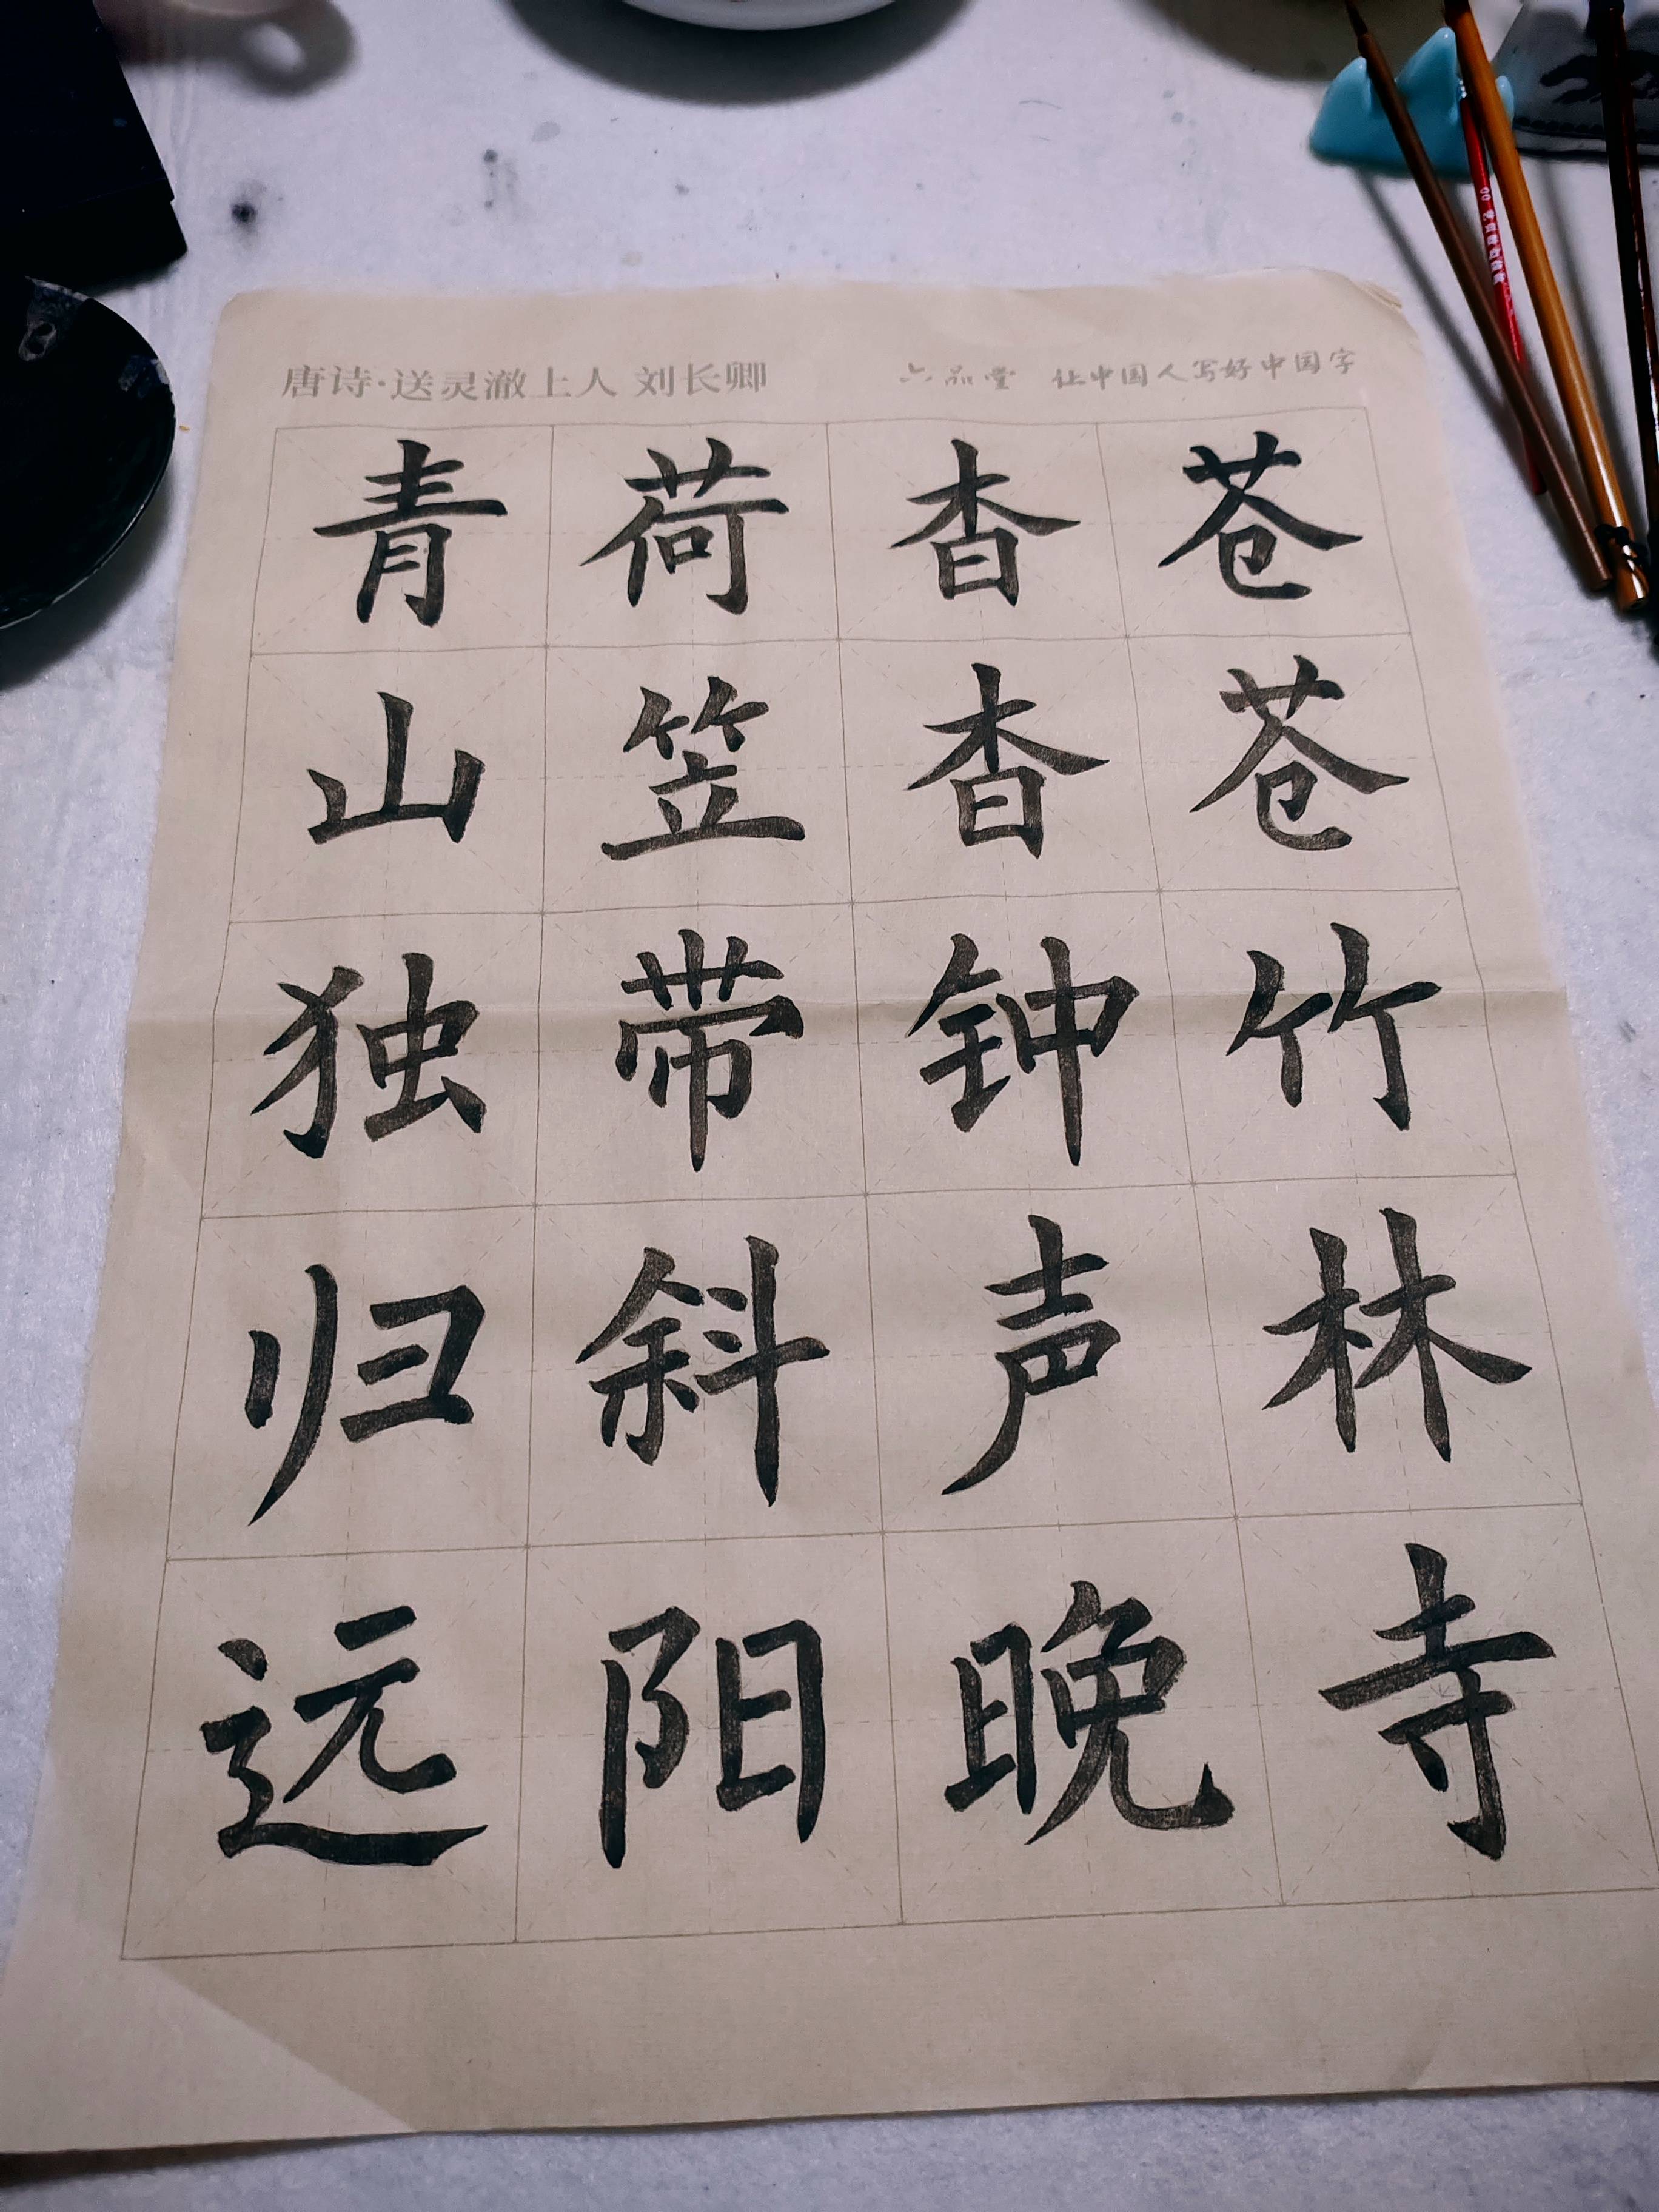 唐诗·送灵澈上人 刘长卿
六品堂 让中国人写好中国字
苍苍竹林寺
杳杳钟声晚
荷笠带斜阳
青山独归远